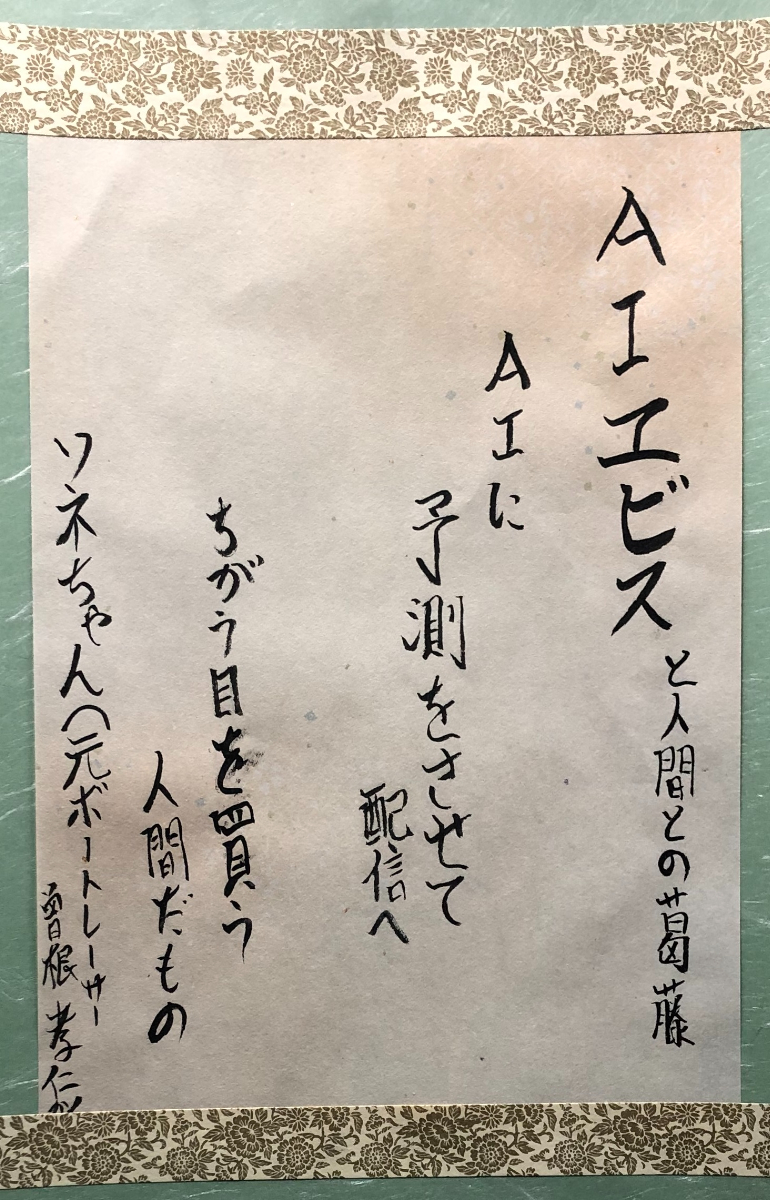 AIヱビスと人間との葛藤
AIに
予測をさせて
配信へ
ちがう目を買う
人間だもの
ソネちゃんの元ボートレーサー
曽根孝仁